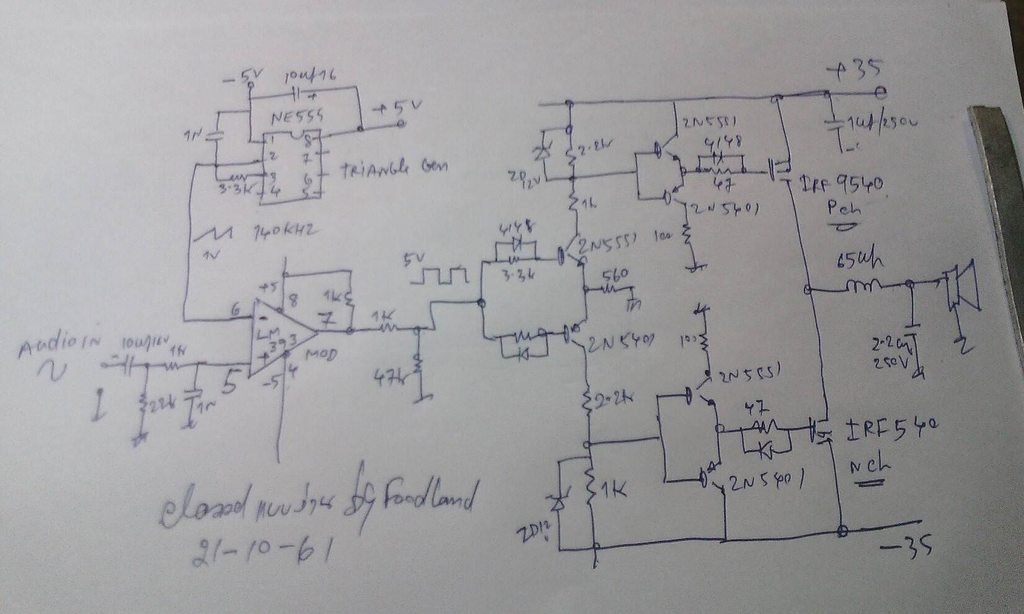 -5V
10uf/16
+5V
NE555
1N
1
8
2
7
3
6
4
5
3.3k
TRIANGLE Gen
140KHZ
1V
+5
8
1K
6
-
LM
393
7
MOD
+
5
-5
4
Audio IN
10uf/16
1K
22k
1N
1K
47k
5V
4148
3.3k
2N5551
560
2N5401
ZD12V
2.2k
1k
2N5551
4148
47
2N5401
100
+35
1uf/250v
IRF 9540
Pch
65uh
2.2uf
250V
100
2N5551
2.2k
47
2N5401
IRF540
Nch
1K
ZD12
-35
by Foodland
21-10-61